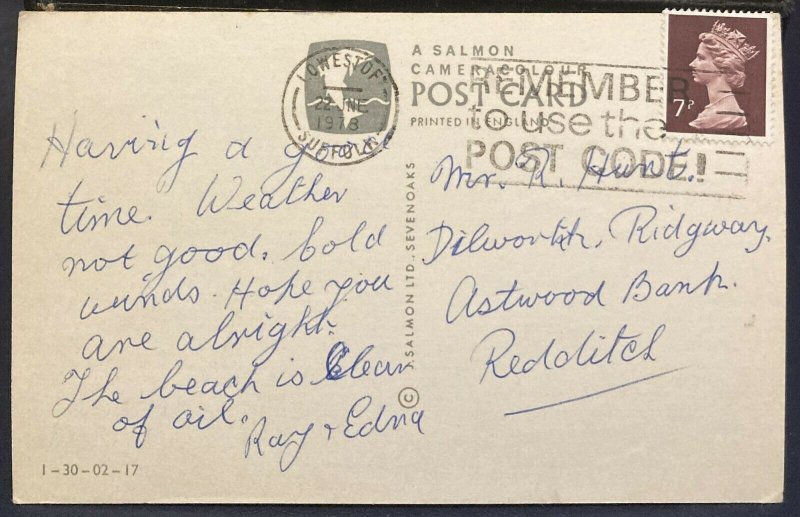 A SALMON
CAMERACOLOUR
POST CARD
PRINTED IN ENGLAND
LOWESTOFT
22 JNE
1978
SUFFOLK
REMEMBER
to use the
POST CODE!
7P
Having a good
time. Weather
not good. Cold
winds. Hope you
are alright.
The beach is Clean
of oil.
Ray + Edna
1-30-02-17
© J. SALMON LTD., SEVENOAKS
Mr. R. Hunt.
Dilworth, Ridgway,
Astwood Bank.
Redditch